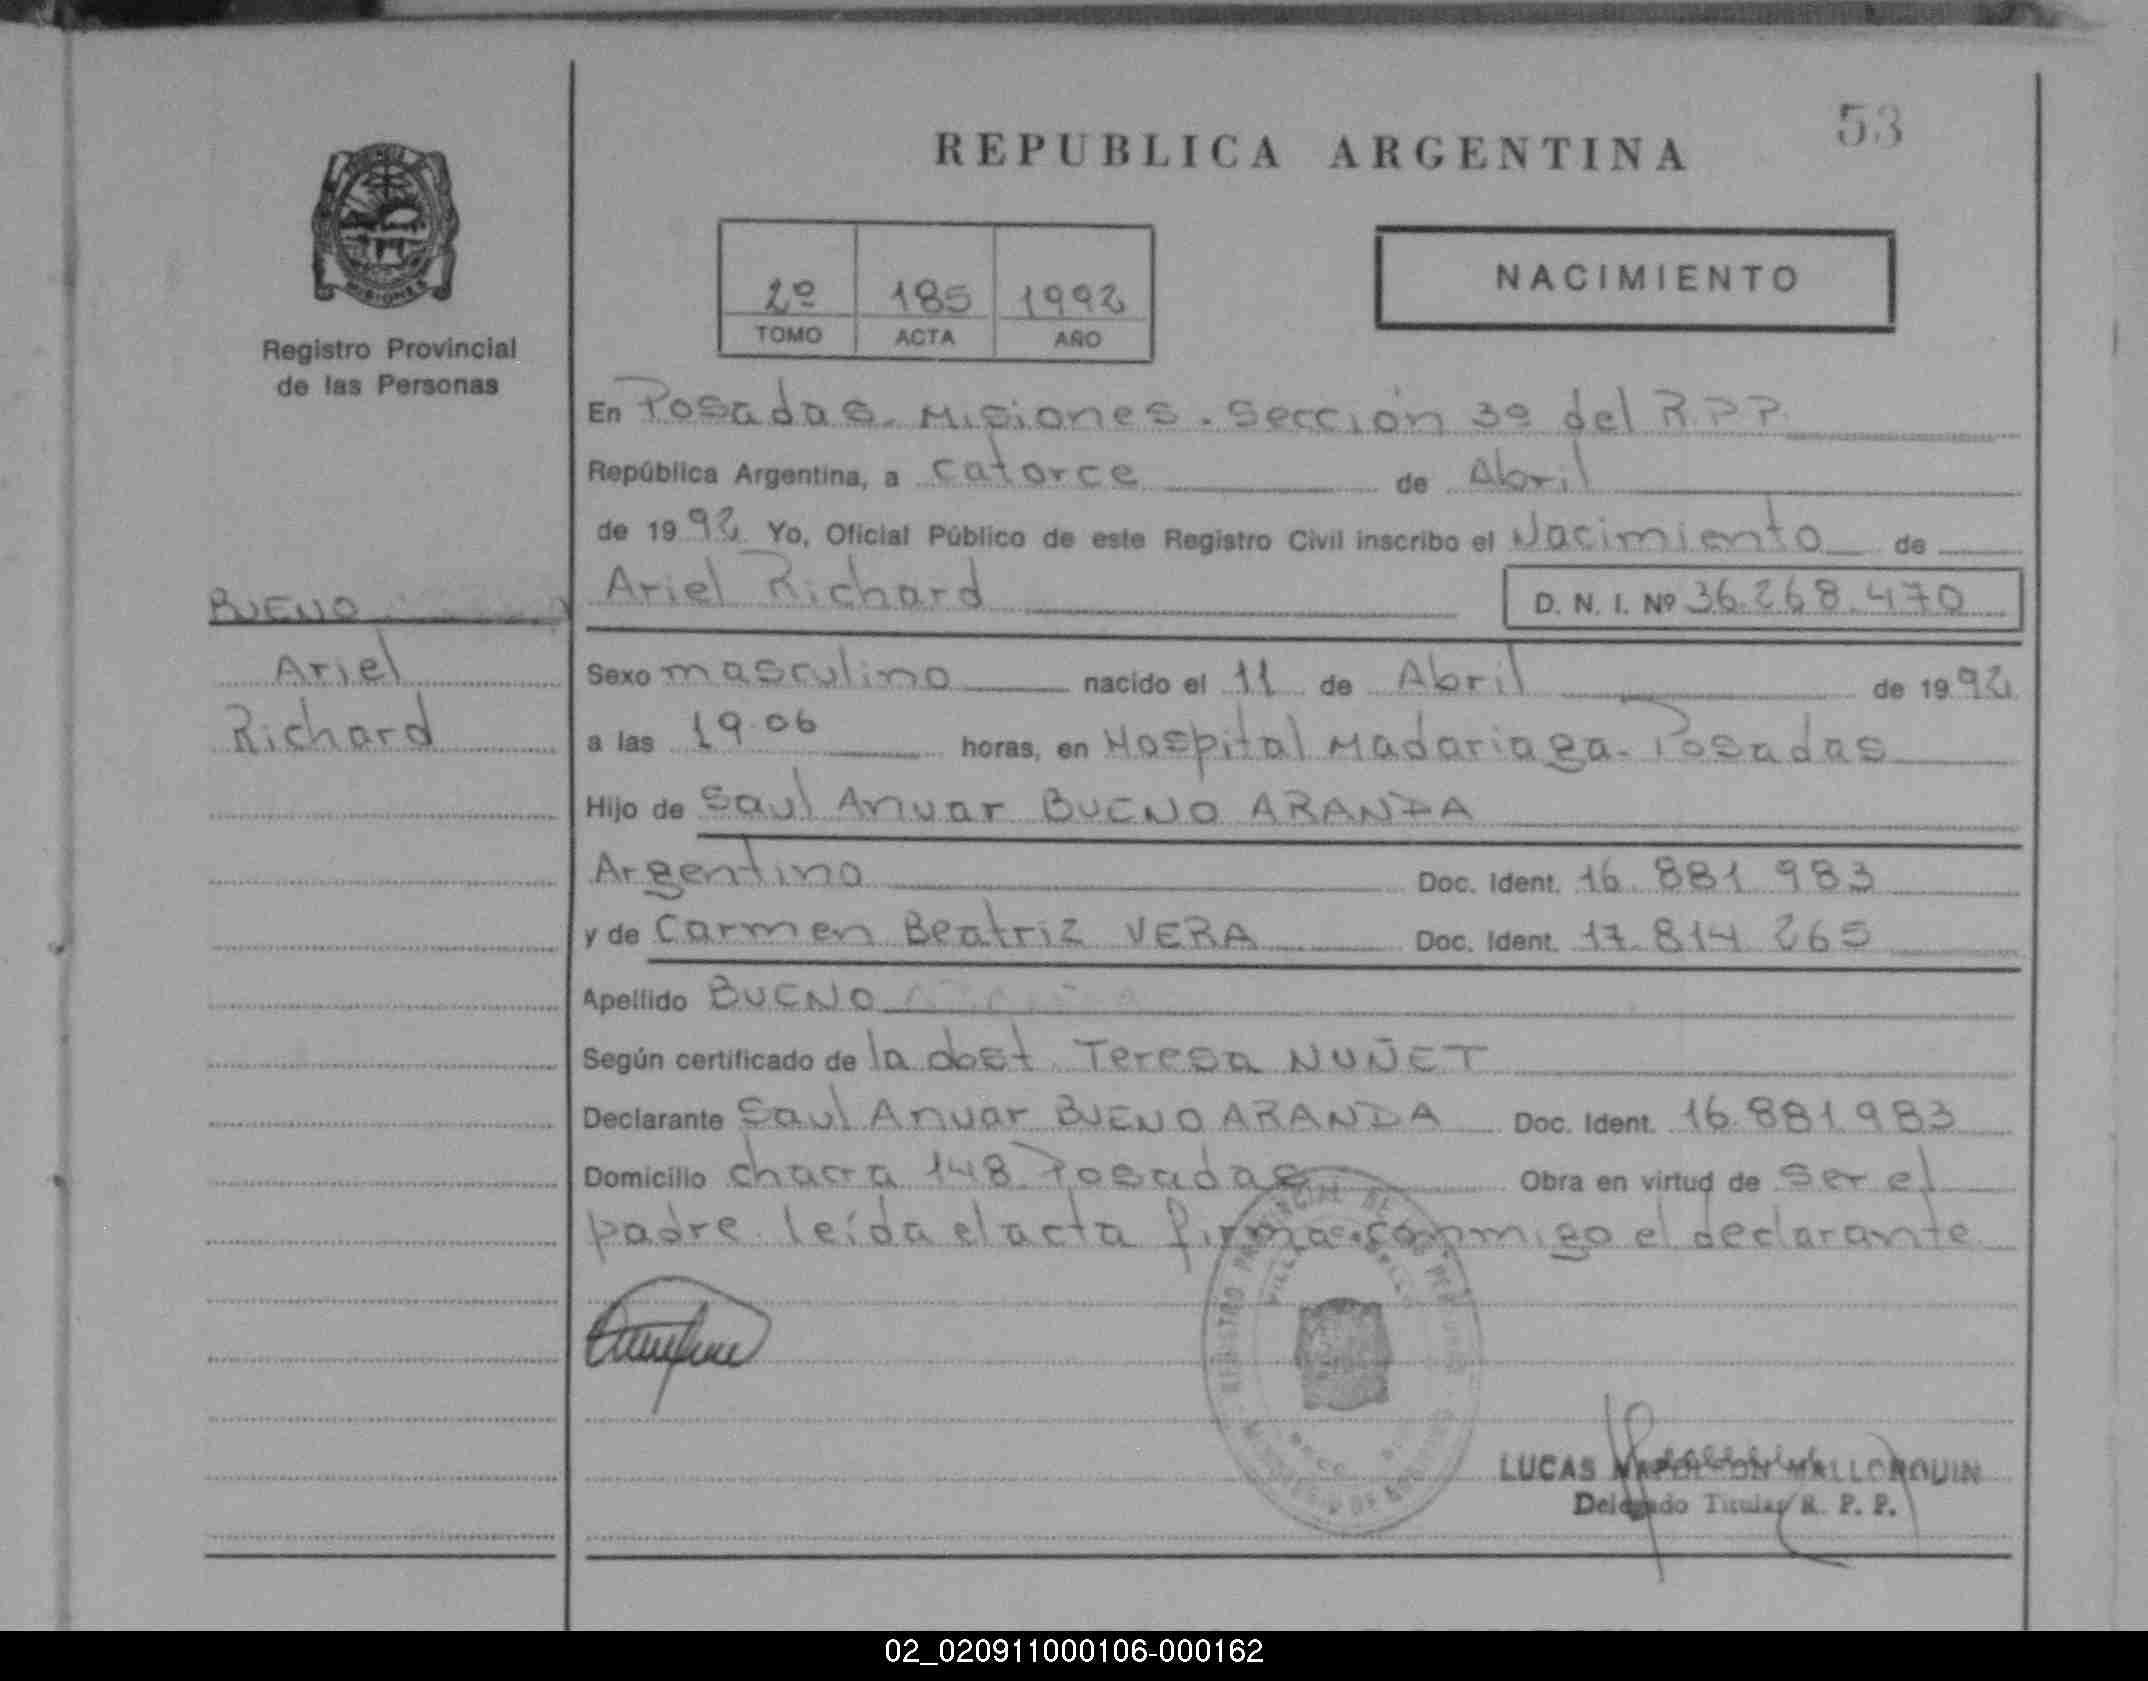 53
REPUBLICA ARGENTINA
NACIMIENTO
2º 185 1992
TOMO ACTA AÑO
MISIONES
Registro Provincial
de las Personas
BUENO
Ariel
Richard
En Posadas. Misiones. Sección 3º del R.P.P.
República Argentina, a catorce de Abril
de 1992 Yo, Oficial Público de este Registro Civil inscribo el Nacimiento de
Ariel Richard D. N. I. Nº 36.268.470
Sexo masculino nacido el 11 de Abril de 1992
a las 19.06 horas, en Hospital Madariaga. Posadas
Hijo de Saul Anuar BUENO ARANDA
Argentino Doc. Ident. 16.881.983
y de Carmen Beatriz VERA Doc. Ident. 17.814.265
Apellido BUENO
Según certificado de la obst. Teresa NUÑET
Declarante Saul Anuar BUENO ARANDA Doc. Ident. 16.881.983
Domicilio chacra 148. Posadas Obra en virtud de ser el
padre. leída el acta firma conmigo el declarante
REGISTRO
LUCAS MALLORQUIN
Delegado Titular R. P. P.
02_020911000106-000162